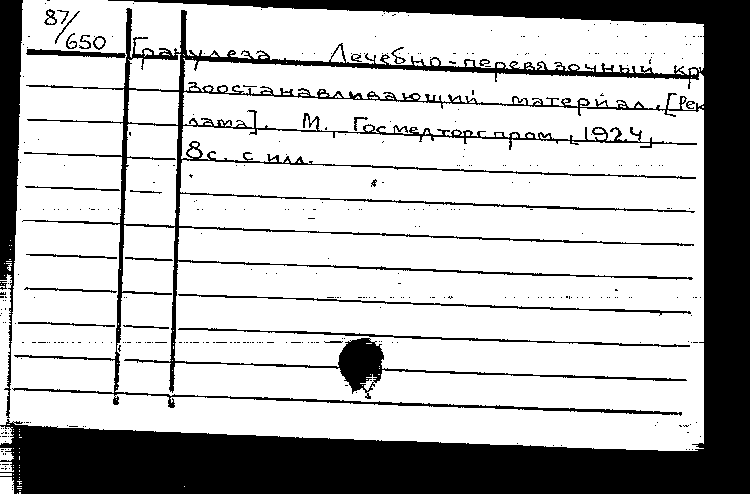 87/650
Гранулеза. Лечебно-перевязочный кр
воостанавливающий материал. [Рек
лама]. М., Госмедторгпром, [1924]
8с. с илл.